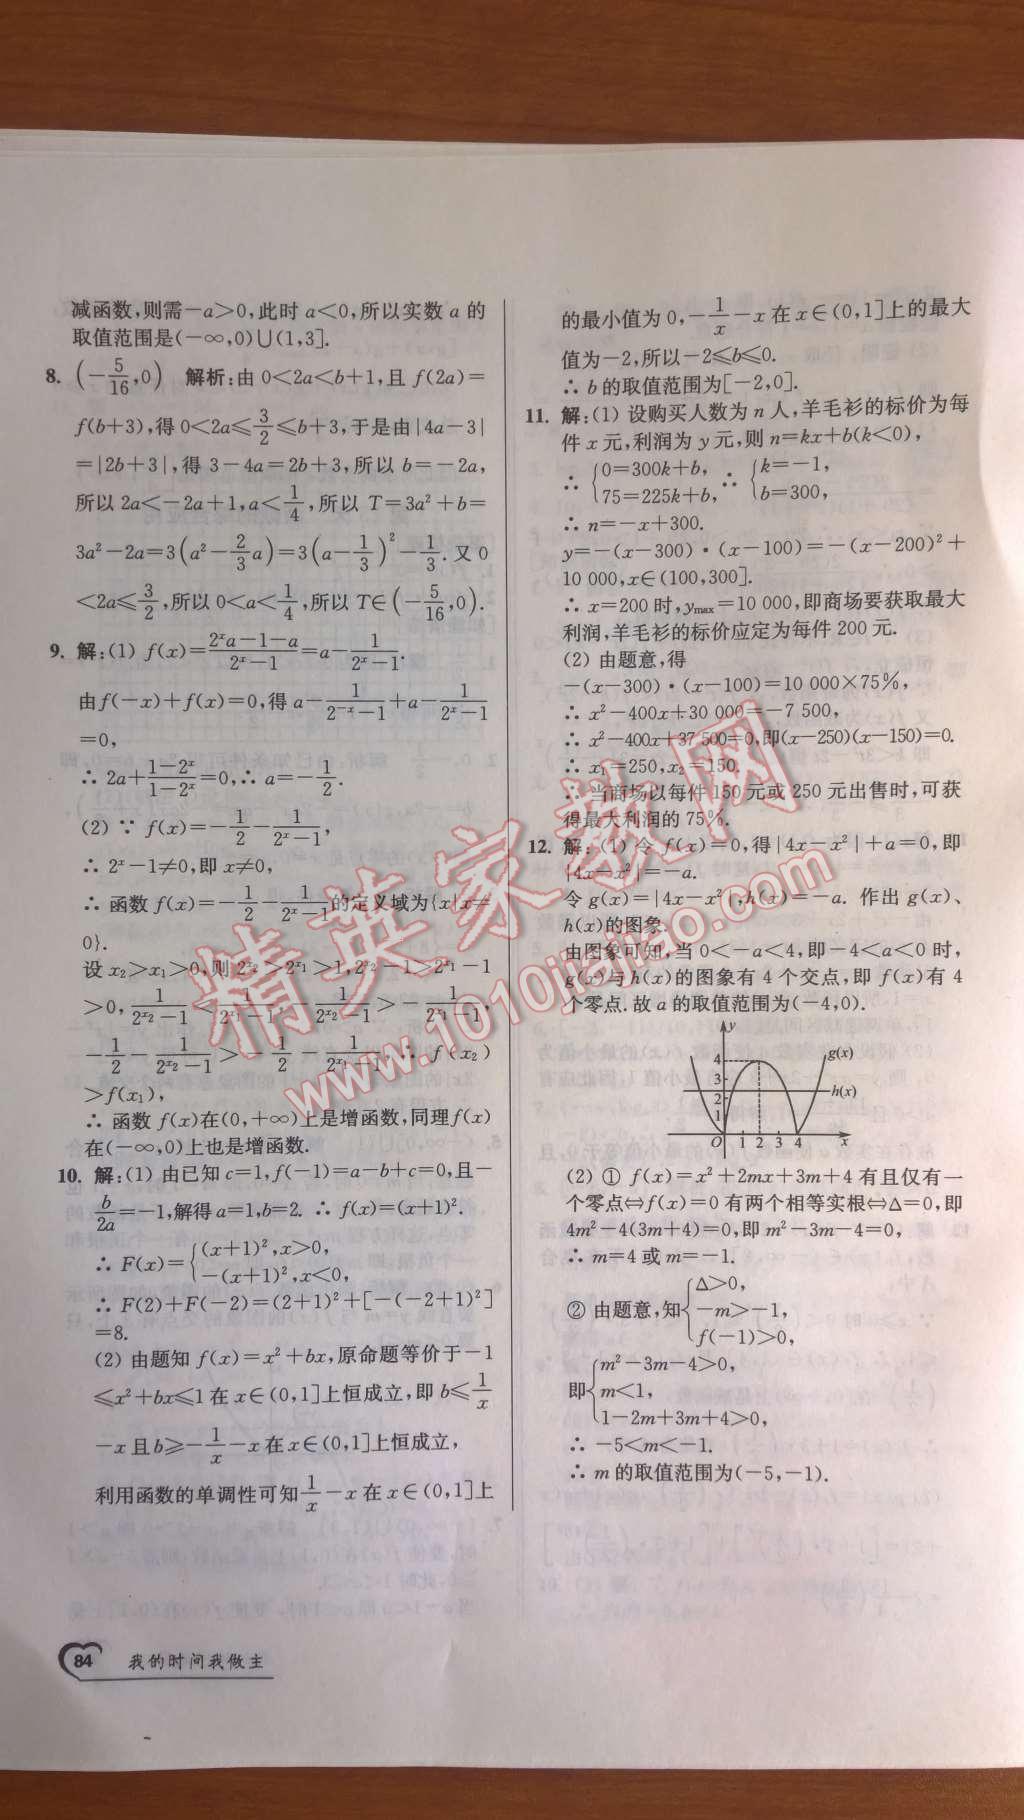 减函数,则需-a>0,此时a<0,所以实数a的
取值范围是(-∞,0)∪(1,3].
8. (-5/16,0) 解析:由0<2a<b+1,且f(2a)=
f(b+3),得0<2a≤3/2≤b+3,于是由|4a-3|
=|2b+3|,得3-4a=2b+3,所以b=-2a,
所以2a<-2a+1,a<1/4,所以T=3a²+b=
3a²-2a=3(a²-2/3a)=3(a-1/3)²-1/3.又0
<2a≤3/2,所以0<a<1/4,所以T∈(-5/16,0).
9. 解:(1) f(x)=(2ˣa-1-a)/(2ˣ-1)=a-1/(2ˣ-1).
由f(-x)+f(x)=0,得a-1/(2⁻ˣ-1)+a-1/(2ˣ-1)
=0,
∴ 2a+(1-2ˣ)/(1-2ˣ)=0,∴ a=-1/2.
(2) ∵ f(x)=-1/2-1/(2ˣ-1),
∴ 2ˣ-1≠0,即x≠0,
∴ 函数f(x)=-1/2-1/(2ˣ-1)的定义域为{x|x≠
0}.
设x₂>x₁>0,则2^x₂>2^x₁>1,2^x₂-1>2^x₁-1
>0,1/(2^x₂-1)<1/(2^x₁-1),-1/(2^x₂-1)>-1/(2^x₁-1),
-1/2-1/(2^x₂-1)>-1/2-1/(2^x₁-1),∴ f(x₂)
>f(x₁),
∴ 函数f(x)在(0,+∞)上是增函数,同理f(x)
在(-∞,0)上也是增函数.
10. 解:(1) 由已知c=1,f(-1)=a-b+c=0,且-
b/2a=-1,解得a=1,b=2. ∴ f(x)=(x+1)².
∴ F(x)={(x+1)²,x>0,
-(x+1)²,x<0,
∴ F(2)+F(-2)=(2+1)²+[-(-2+1)²]
=8.
(2) 由题知f(x)=x²+bx,原命题等价于-1
≤x²+bx≤1在x∈(0,1]上恒成立,即b≤1/x
-x且b≥-1/x-x在x∈(0,1]上恒成立,
利用函数的单调性可知1/x-x在x∈(0,1]上
84 我的时间我做主
的最小值为0,-1/x-x在x∈(0,1]上的最大
值为-2,所以-2≤b≤0.
∴ b的取值范围为[-2,0].
11. 解:(1) 设购买人数为n人,羊毛衫的标价为每
件x元,利润为y元,则n=kx+b(k<0),
∴ {0=300k+b, ∴ {k=-1,
75=225k+b, b=300,
∴ n=-x+300.
y=-(x-300)·(x-100)=-(x-200)²+
10 000,x∈(100,300].
∴ x=200时,ymax=10 000,即商场要获取最大
利润,羊毛衫的标价应定为每件200元.
(2) 由题意,得
-(x-300)·(x-100)=10 000×75%,
∴ x²-400x+30 000=-7 500,
∴ x²-400x+37 500=0,即(x-250)(x-150)=0.
∴ x₁=250,x₂=150.
∴ 当商场以每件150元或250元出售时,可获
得最大利润的75%.
12. 解:(1) 令f(x)=0,得|4x-x²|+a=0,即
|4x-x²|=-a.
令g(x)=|4x-x²|,h(x)=-a. 作出g(x)、
h(x)的图象.
由图象可知,当0<-a<4,即-4<a<0时,
g(x)与h(x)的图象有4个交点,即f(x)有4
个零点.故a的取值范围为(-4,0).
y
g(x)
4
3
h(x)
2
1
O 1 2 3 4 x
(2) ① f(x)=x²+2mx+3m+4有且仅有一
个零点⇔f(x)=0有两个相等实根⇔Δ=0,即
4m²-4(3m+4)=0,即m²-3m-4=0,
∴ m=4或m=-1.
② 由题意,知{Δ>0,
-m>-1,
f(-1)>0,
即{m²-3m-4>0,
m<1,
1-2m+3m+4>0,
∴ -5<m<-1.
∴ m的取值范围为(-5,-1).
精英家教网
www.1010jiajiao.com